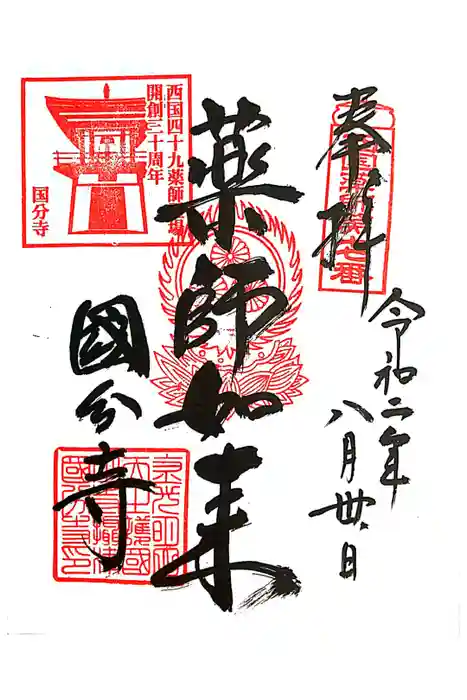 奉拝
令和二年
八月卅日
薬師如来
國分寺
西国四十九薬師霊場
開創三十周年
国分寺